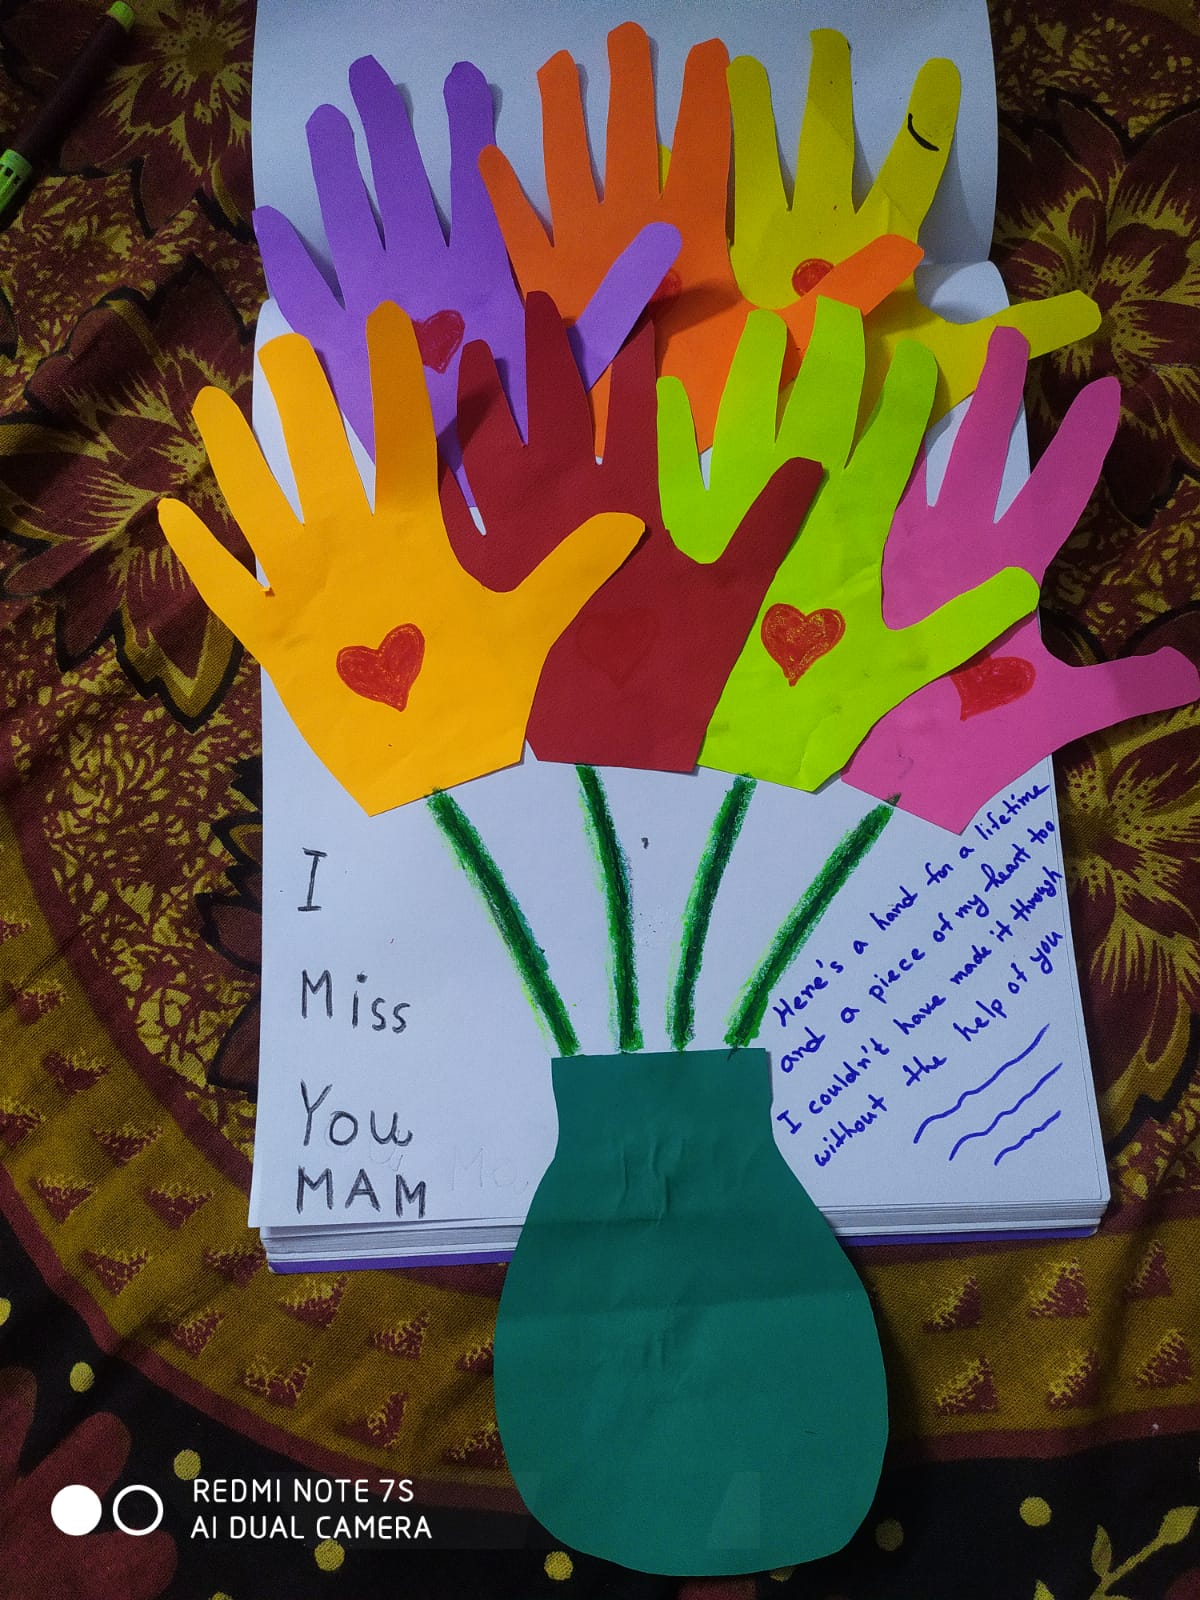 I
Miss
You
MAM
Here's a hand for a lifetime
and a piece of my heart too
I couldn't have made it through
without the help of you
REDMI NOTE 7S
AI DUAL CAMERA